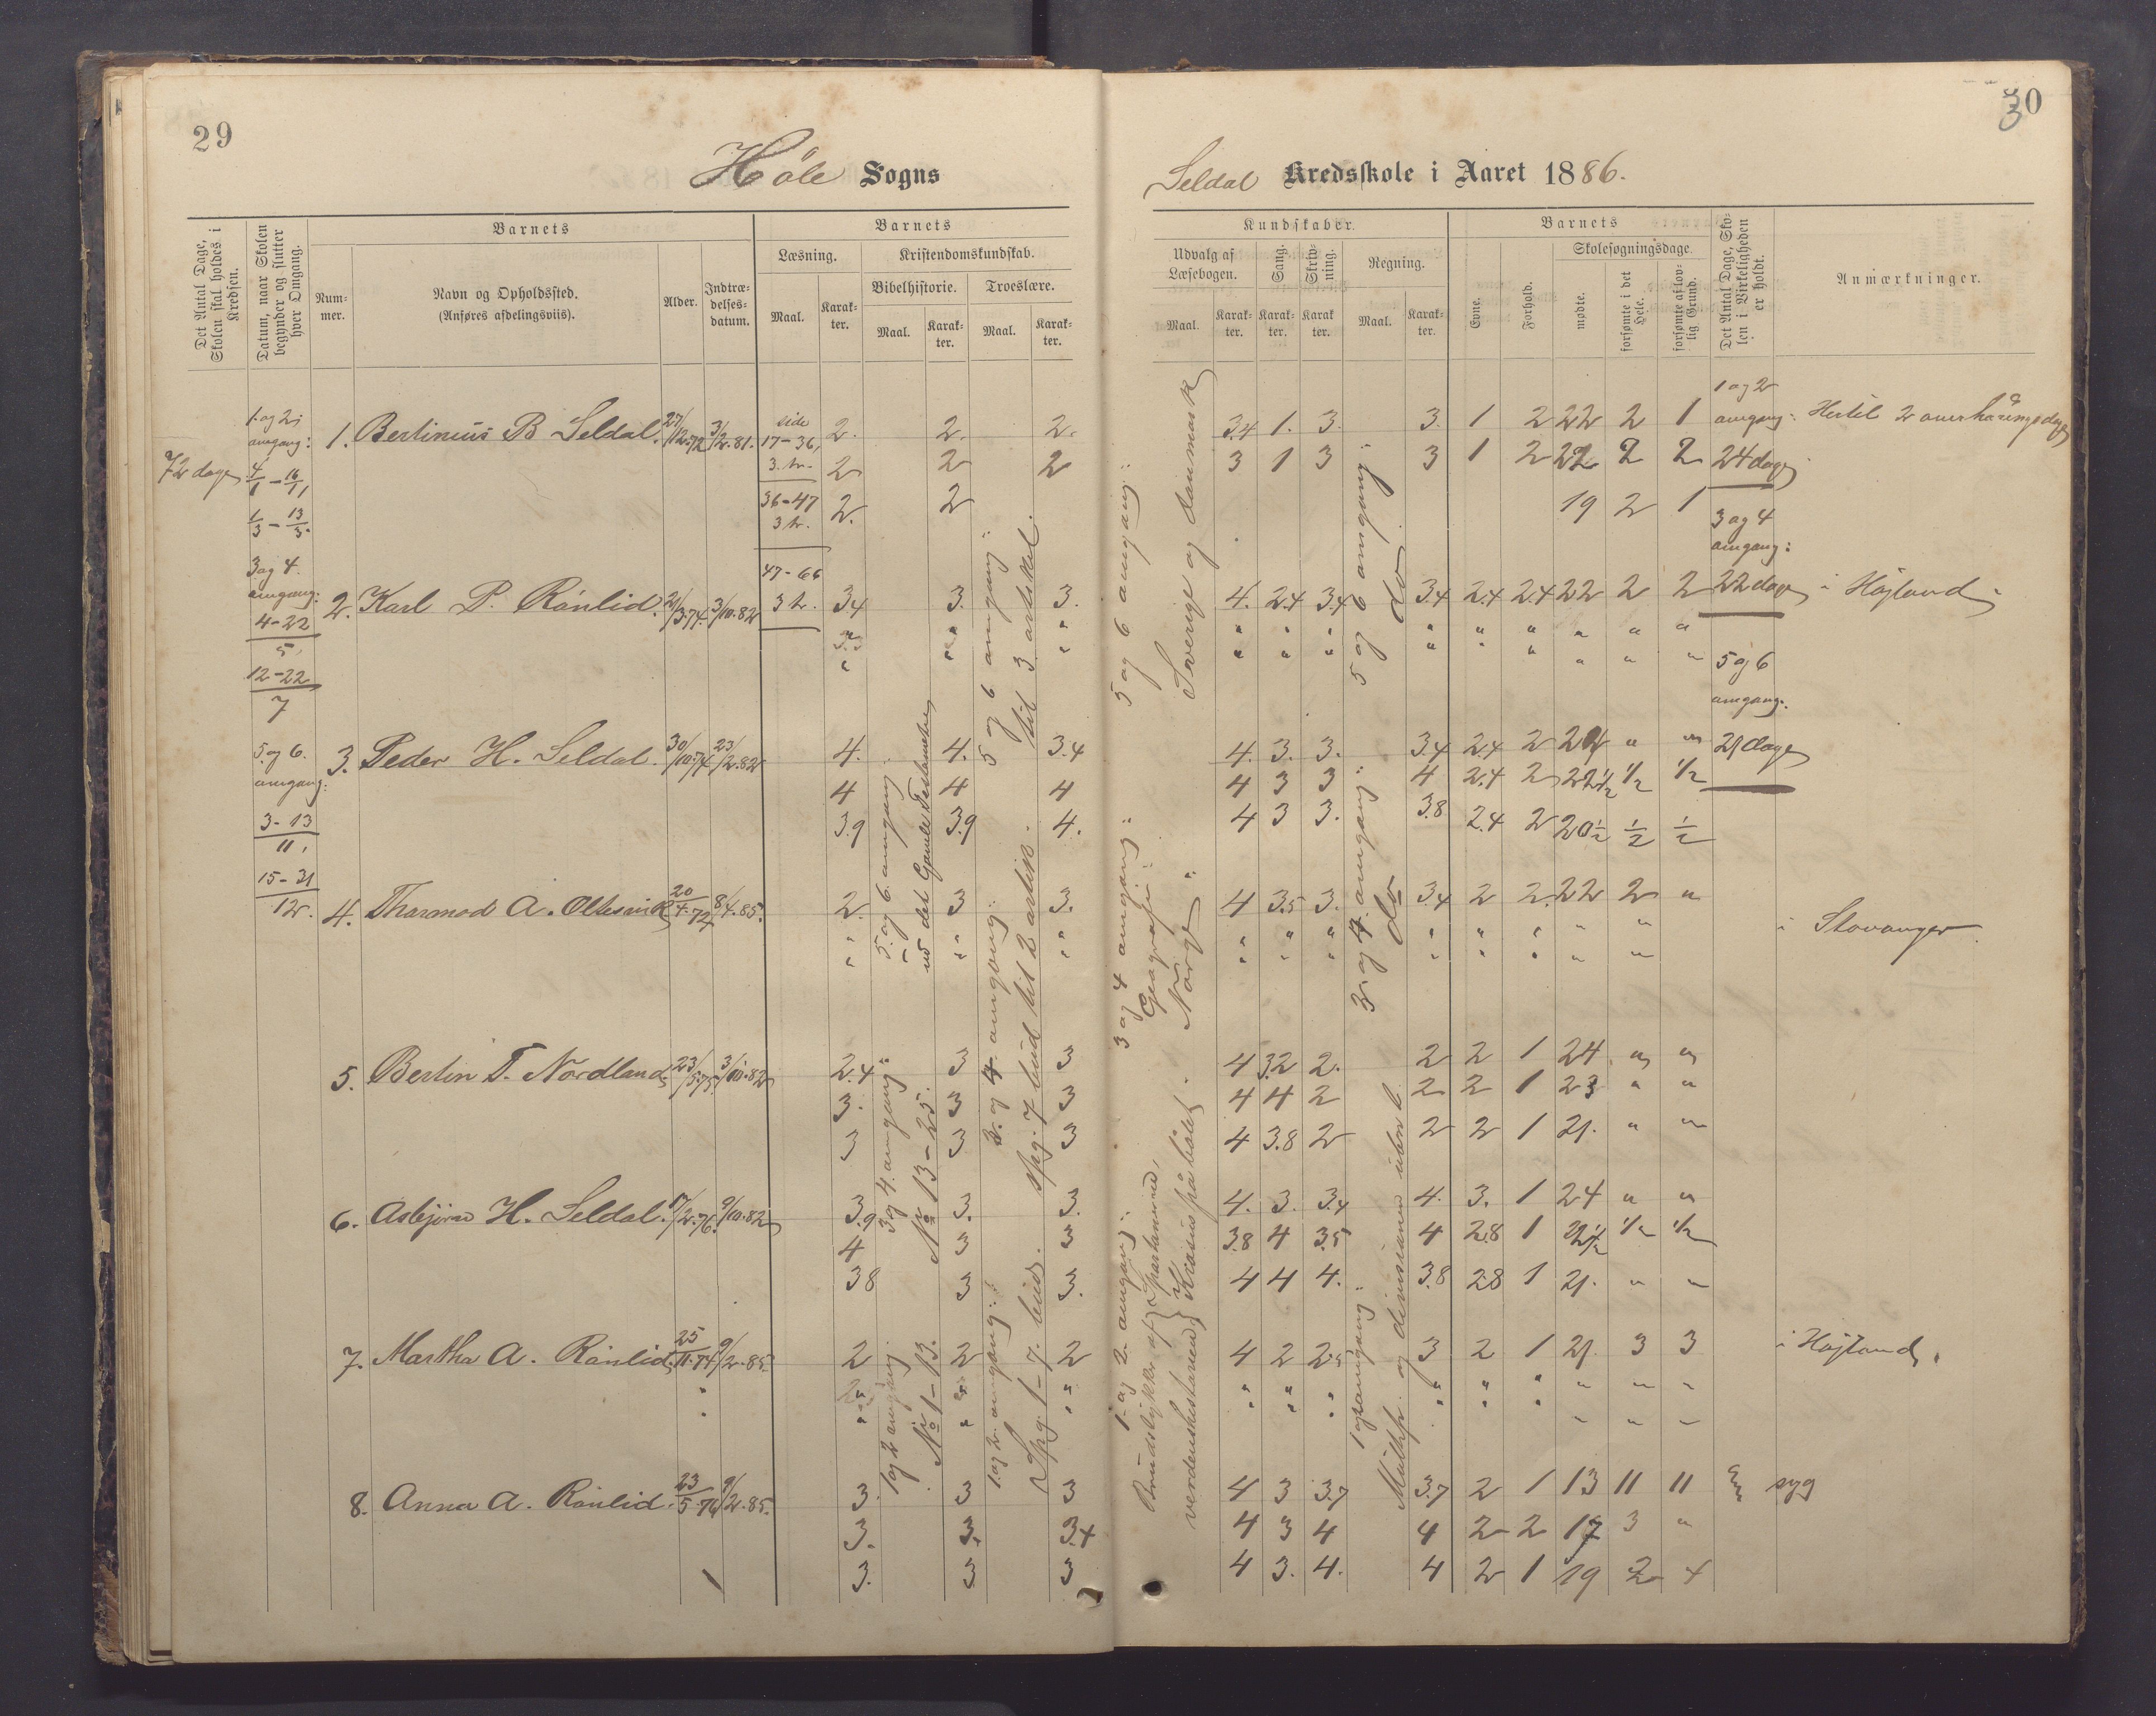 29
Höle Sogns
Det Antal Dage, Skolen skal holdes i Kredsen.
Datum, naar Skolen begynder og slutter hver Omgang.
Barnets
Num-mer.
Navn og Opholdssted.
(Anføres afdelingsviis).
Alder.
Indtræ-delses-datum.
Barnets
Læsning.
Kristendomskundskab.
Bibelhistorie.
Troeslære.
Maal.
Karak-ter.
Maal.
Karak-ter.
Maal.
Karak-ter.
72 dage
1. og 2.
omgang:
4/1 - 16/1,
1/3 - 13/3.
3 og 4.
omgang:
4-22
5,
12-22
7
5. og 6.
omgang:
3-13
11,
15-31
12.
side
17-36,
3. tr.
36-47
3 tr.
47-66
3 tr.
1. Bertinius B Seldal. 27/12.72 3/2.81. 2. 2. 2.
2 2 2
2. 2
2. Karl P. Rönlid. 21/3.74. 3/10.82 3.4 3. 3.
3. Peder H. Seldal. 30/10.74 23/2.82 4. 4. 3.4
4 4 4
3.9 3.9 4.
4. Thormod A. Oltesvik 20/4.72 8/4.85. 2. 3 3.
5. Bertin T. Nordland 23/5.75. 3/10.82 2.4 3 3
3. 3 3
3 3 3
6. Asbjörn H. Seldal. 17/2.76. 9/10.82 3.9 3. 3.
4 3 3
38 3 3.
7. Martha A. Rönlid. 25/11.74 9/2.85. 2 2 2
8. Anna A. Rönlid. 23/5.76 9/2.85. 3. 3 3
3. 3. 3.4
3. 3 3
1 og 2 omgang
No 1-13.
3 og 4. omgang:
No 13-25.
5. og 6. omgang:
ud det Gamle Testamente
1. og 2. omgang:
Spg. 1-7. bud.
3. og 4. omgang:
spg. 7 bud til 2 artik.
5 og 6 omgang:
til 3. artikel.
30
Seldal Kredsskole i Aaret 1886.
Kundskaber.
Udvalg af Læsebogen.
Sang.
Skriv-ning.
Regning.
Maal.
Karak-ter.
Karak-ter.
Karak-ter.
Maal.
Karak-ter.
Barnets
Evne.
Forhold.
Skolesøgningsdage.
mødte.
forsømte i det Hele.
forsømte af lov-lig Grund.
Det Antal Dage, Sko-len i Virkeligheden er holdt.
Anmærkninger.
1 og 2. omgang:
verdenshistorien
3 og 4 omgang:
Geografi:
Norge
5 og 6 omgang:
Sverige og Danmark
1 og 2 omgang
3 og 4. omgang:
do
5 og 6 omgang:
do.
3.4 1. 3. 3. 1 2 22 2 1
3 1 3 3 1 2 22 2 2
19 2 1
4. 2.4 3.4 3.4 2.4 2.4 22 2 2 i Højland
4. 3. 3. 3.4 2.4 2 24 " "
4 3 3 4 2.4 2 22½ ½ ½
4 3 3. 3.8 2.4 2 20½ ½ ½
4 3.5 3. 3.4 2 2. 22 2 "
i Stavanger
4 3.2 2. 2 2 1 24 " "
4 4 2 2 2 1 23 " "
4 3.8 2 2 2 1 21. " "
4. 3. 3.4 4. 3. 1 24 " "
3.8 4 3.5 4 2.8 1 22½ ½ ½
4 4 4. 3.8 2.8 1 21. " "
4 2 2.5 3 2 1 21 3 3 i Højland.
4 3 3.7 3.7 2 1 13 11 11 syg
4 3 4 4 2 2 17 3 "
4 3. 4. 4 2 1 19 2 4
1 og 2
omgang:
24 dage
3 og 4
omgang:
22 dage
5 og 6
omgang:
21 dage
Hertil 2 overhøringsdage